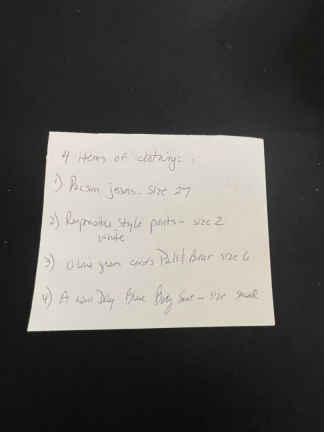 4 Items of clothing:
1) Pacsun jeans - size 27
2) style pants - size 2
white
3) olive green size 6
4) A new Day Blue Body Suit - size small